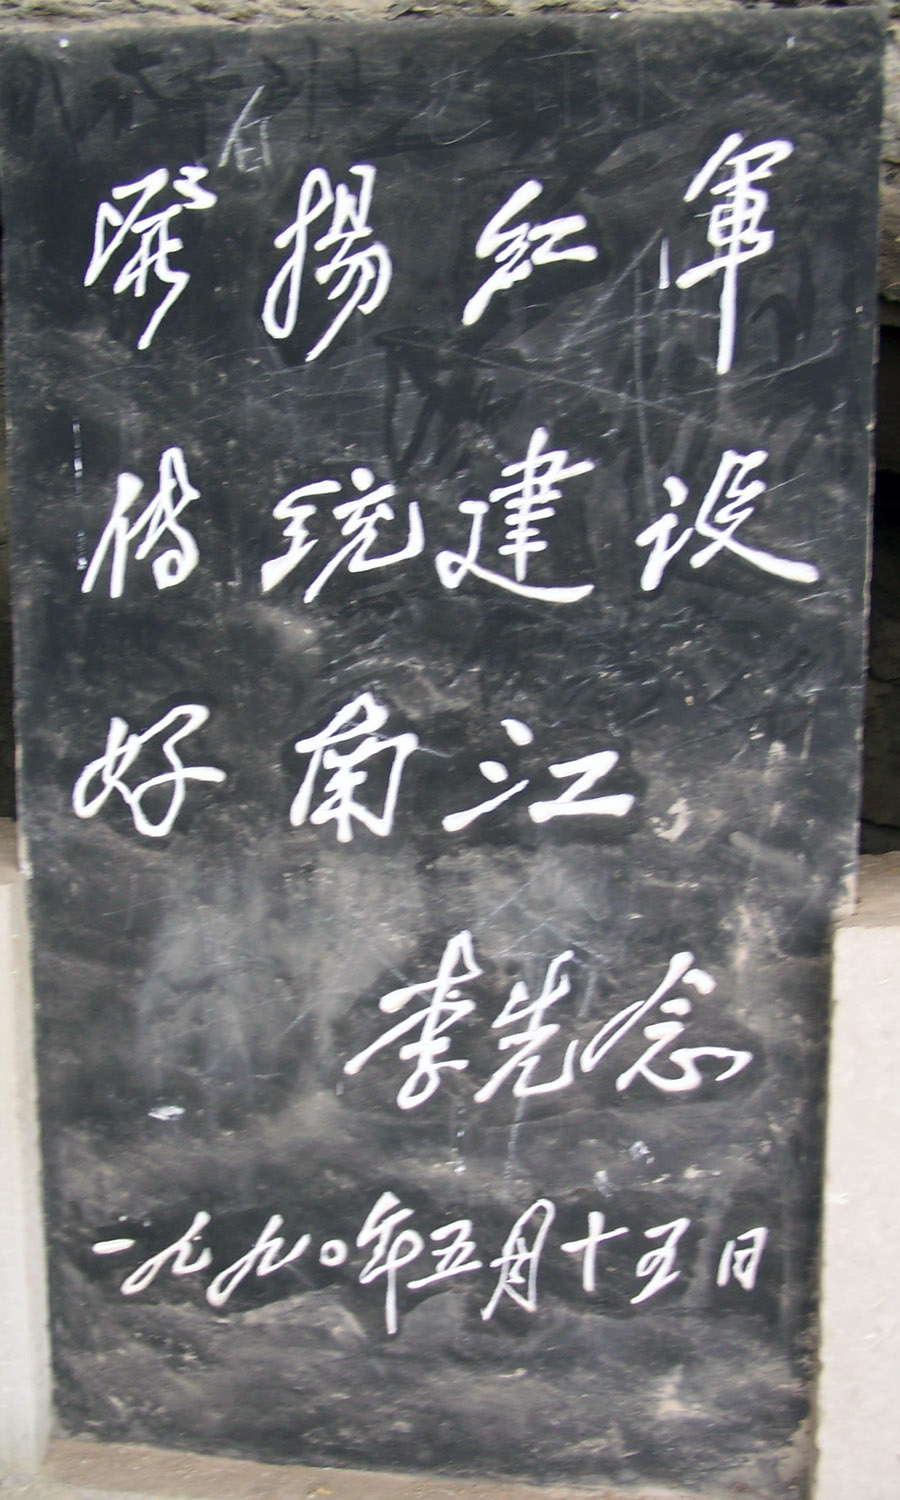 發揚红軍
傳统建设
好南江
李先念
一九九〇年五月十五日